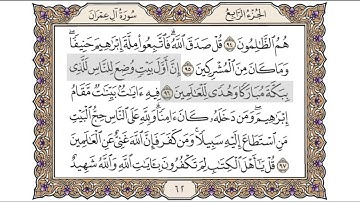 سورة آل عمران
الجزء الرابع
هُمُ الظَّالِمُونَ ٩٤ قُلْ صَدَقَ اللَّهُ فَاتَّبِعُوا مِلَّةَ إِبْرَاهِيمَ حَنِيفًا
وَمَا كَانَ مِنَ الْمُشْرِكِينَ ٩٥ إِنَّ أَوَّلَ بَيْتٍ وُضِعَ لِلنَّاسِ لَلَّذِي
بِبَكَّةَ مُبَارَكًا وَهُدًى لِلْعَالَمِينَ ٩٦ فِيهِ آيَاتٌ بَيِّنَاتٌ مَقَامُ
إِبْرَاهِيمَ وَمَنْ دَخَلَهُ كَانَ آمِنًا وَلِلَّهِ عَلَى النَّاسِ حِجُّ الْبَيْتِ
مَنِ اسْتَطَاعَ إِلَيْهِ سَبِيلًا وَمَنْ كَفَرَ فَإِنَّ اللَّهَ غَنِيٌّ عَنِ الْعَالَمِينَ
٩٧ قُلْ يَا أَهْلَ الْكِتَابِ لِمَ تَكْفُرُونَ بِآيَاتِ اللَّهِ وَاللَّهُ شَهِيدٌ
٦٢